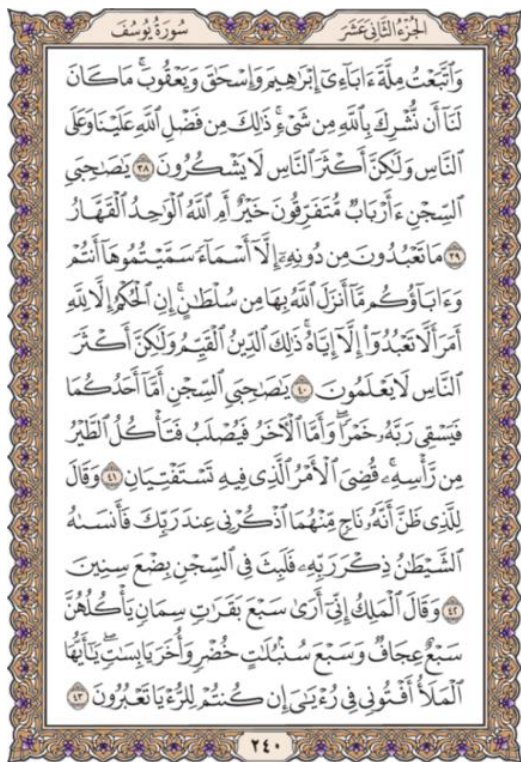 الجزء الثاني عشر
سورة يوسف
وَاتَّبَعْتُ مِلَّةَ ءَابَآءِىٓ إِبْرَٰهِيمَ وَإِسْحَٰقَ وَيَعْقُوبَ ۚ مَا كَانَ
لَنَآ أَن نُّشْرِكَ بِٱللَّهِ مِن شَىْءٍ ۚ ذَٰلِكَ مِن فَضْلِ ٱللَّهِ عَلَيْنَا وَعَلَى
ٱلنَّاسِ وَلَٰكِنَّ أَكْثَرَ ٱلنَّاسِ لَا يَشْكُرُونَ ٣٨ يَٰصَٰحِبَىِ
ٱلسِّجْنِ ءَأَرْبَابٌ مُّتَفَرِّقُونَ خَيْرٌ أَمِ ٱللَّهُ ٱلْوَٰحِدُ ٱلْقَهَّارُ
٣٩ مَا تَعْبُدُونَ مِن دُونِهِۦٓ إِلَّآ أَسْمَآءً سَمَّيْتُمُوهَآ أَنتُمْ
وَءَابَآؤُكُم مَّآ أَنزَلَ ٱللَّهُ بِهَا مِن سُلْطَٰنٍ ۚ إِنِ ٱلْحُكْمُ إِلَّا لِلَّهِ
أَمَرَ أَلَّا تَعْبُدُوٓا۟ إِلَّآ إِيَّاهُ ۚ ذَٰلِكَ ٱلدِّينُ ٱلْقَيِّمُ وَلَٰكِنَّ أَكْثَرَ
ٱلنَّاسِ لَا يَعْلَمُونَ ٤٠ يَٰصَٰحِبَىِ ٱلسِّجْنِ أَمَّآ أَحَدُكُمَا
فَيَسْقِى رَبَّهُۥ خَمْرًا ۖ وَأَمَّا ٱلْءَاخَرُ فَيُصْلَبُ فَتَأْكُلُ ٱلطَّيْرُ
مِن رَّأْسِهِۦ ۚ قُضِىَ ٱلْأَمْرُ ٱلَّذِى فِيهِ تَسْتَفْتِيَانِ ٤١ وَقَالَ
لِلَّذِى ظَنَّ أَنَّهُۥ نَاجٍ مِّنْهُمَا ٱذْكُرْنِى عِندَ رَبِّكَ فَأَنسَىٰهُ
ٱلشَّيْطَٰنُ ذِكْرَ رَبِّهِۦ فَلَبِثَ فِى ٱلسِّجْنِ بِضْعَ سِنِينَ
٤٢ وَقَالَ ٱلْمَلِكُ إِنِّىٓ أَرَىٰ سَبْعَ بَقَرَٰتٍ سِمَانٍ يَأْكُلُهُنَّ
سَبْعٌ عِجَافٌ وَسَبْعَ سُنۢبُلَٰتٍ خُضْرٍ وَأُخَرَ يَابِسَٰتٍ ۖ يَٰٓأَيُّهَا
ٱلْمَلَأُ أَفْتُونِى فِى رُءْيَٰىَ إِن كُنتُمْ لِلرُّءْيَا تَعْبُرُونَ ٤٣
٢٤٠